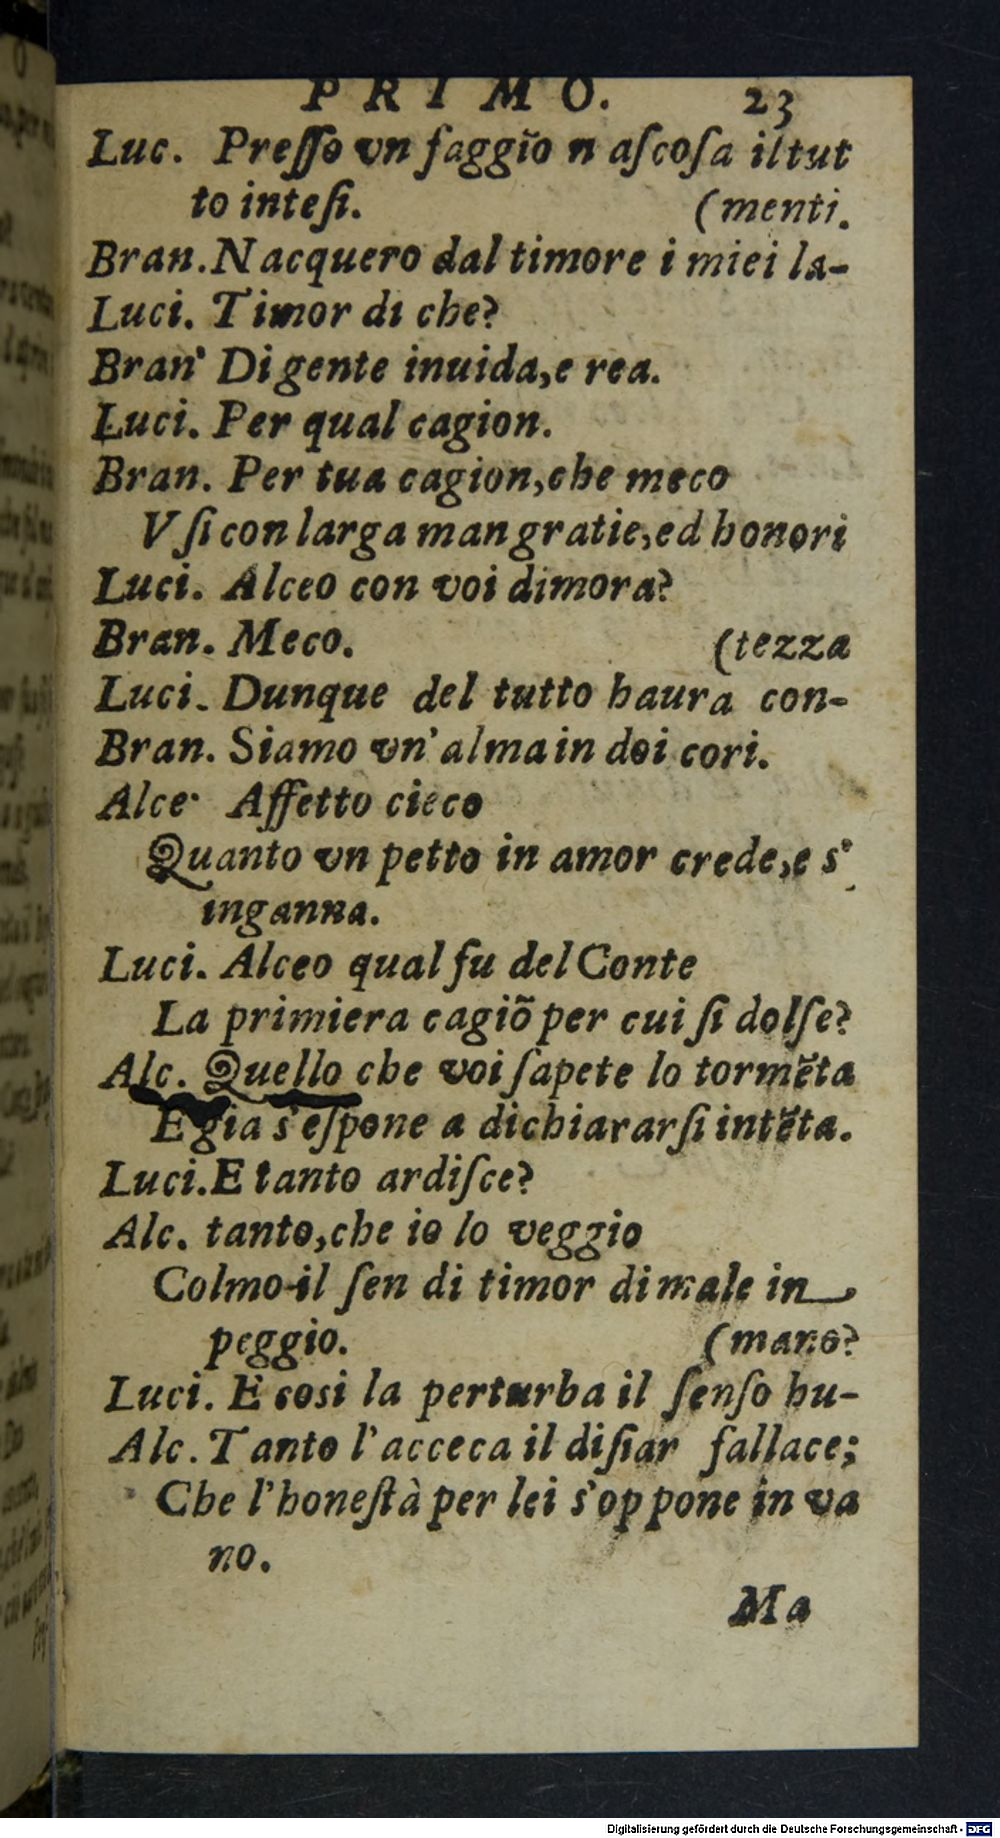 PRIMO. 23
Luc. Preſſo vn faggĩo n aſcoſa il tut
to inteſi. (menti.
Bran. Nacquero dal timore i miei la-
Luci. Timor di che?
Bran' Di gente inuida, e rea.
Luci. Per qual cagion.
Bran. Per tua cagion, che meco
Vſi con larga man gratie, ed honori
Luci. Alceo con voi dimora?
Bran. Meco. (tezza
Luci. Dunque del tutto haura con-
Bran. Siamo vn' alma in doi cori.
Alce. Affetto cieco
Quanto vn petto in amor crede, e s'
inganna.
Luci. Alceo qual fu del Conte
La primiera cagiõ per cui ſi dolſe?
Alc. Quello che voi ſapete lo tormẽta
E gia s'eſpone a dichiararſi intẽta.
Luci. E tanto ardiſce?
Alc. tanto, che io lo veggio
Colmo il ſen di timor di male in
peggio. (mano?
Luci. E cosi la perturba il ſenſo hu-
Alc. Tanto l'acceca il diſiar fallace;
Che l'honeſtà per lei s'oppone in va
no.
Ma
Digitalisierung gefördert durch die Deutsche Forschungsgemeinschaft - DFG